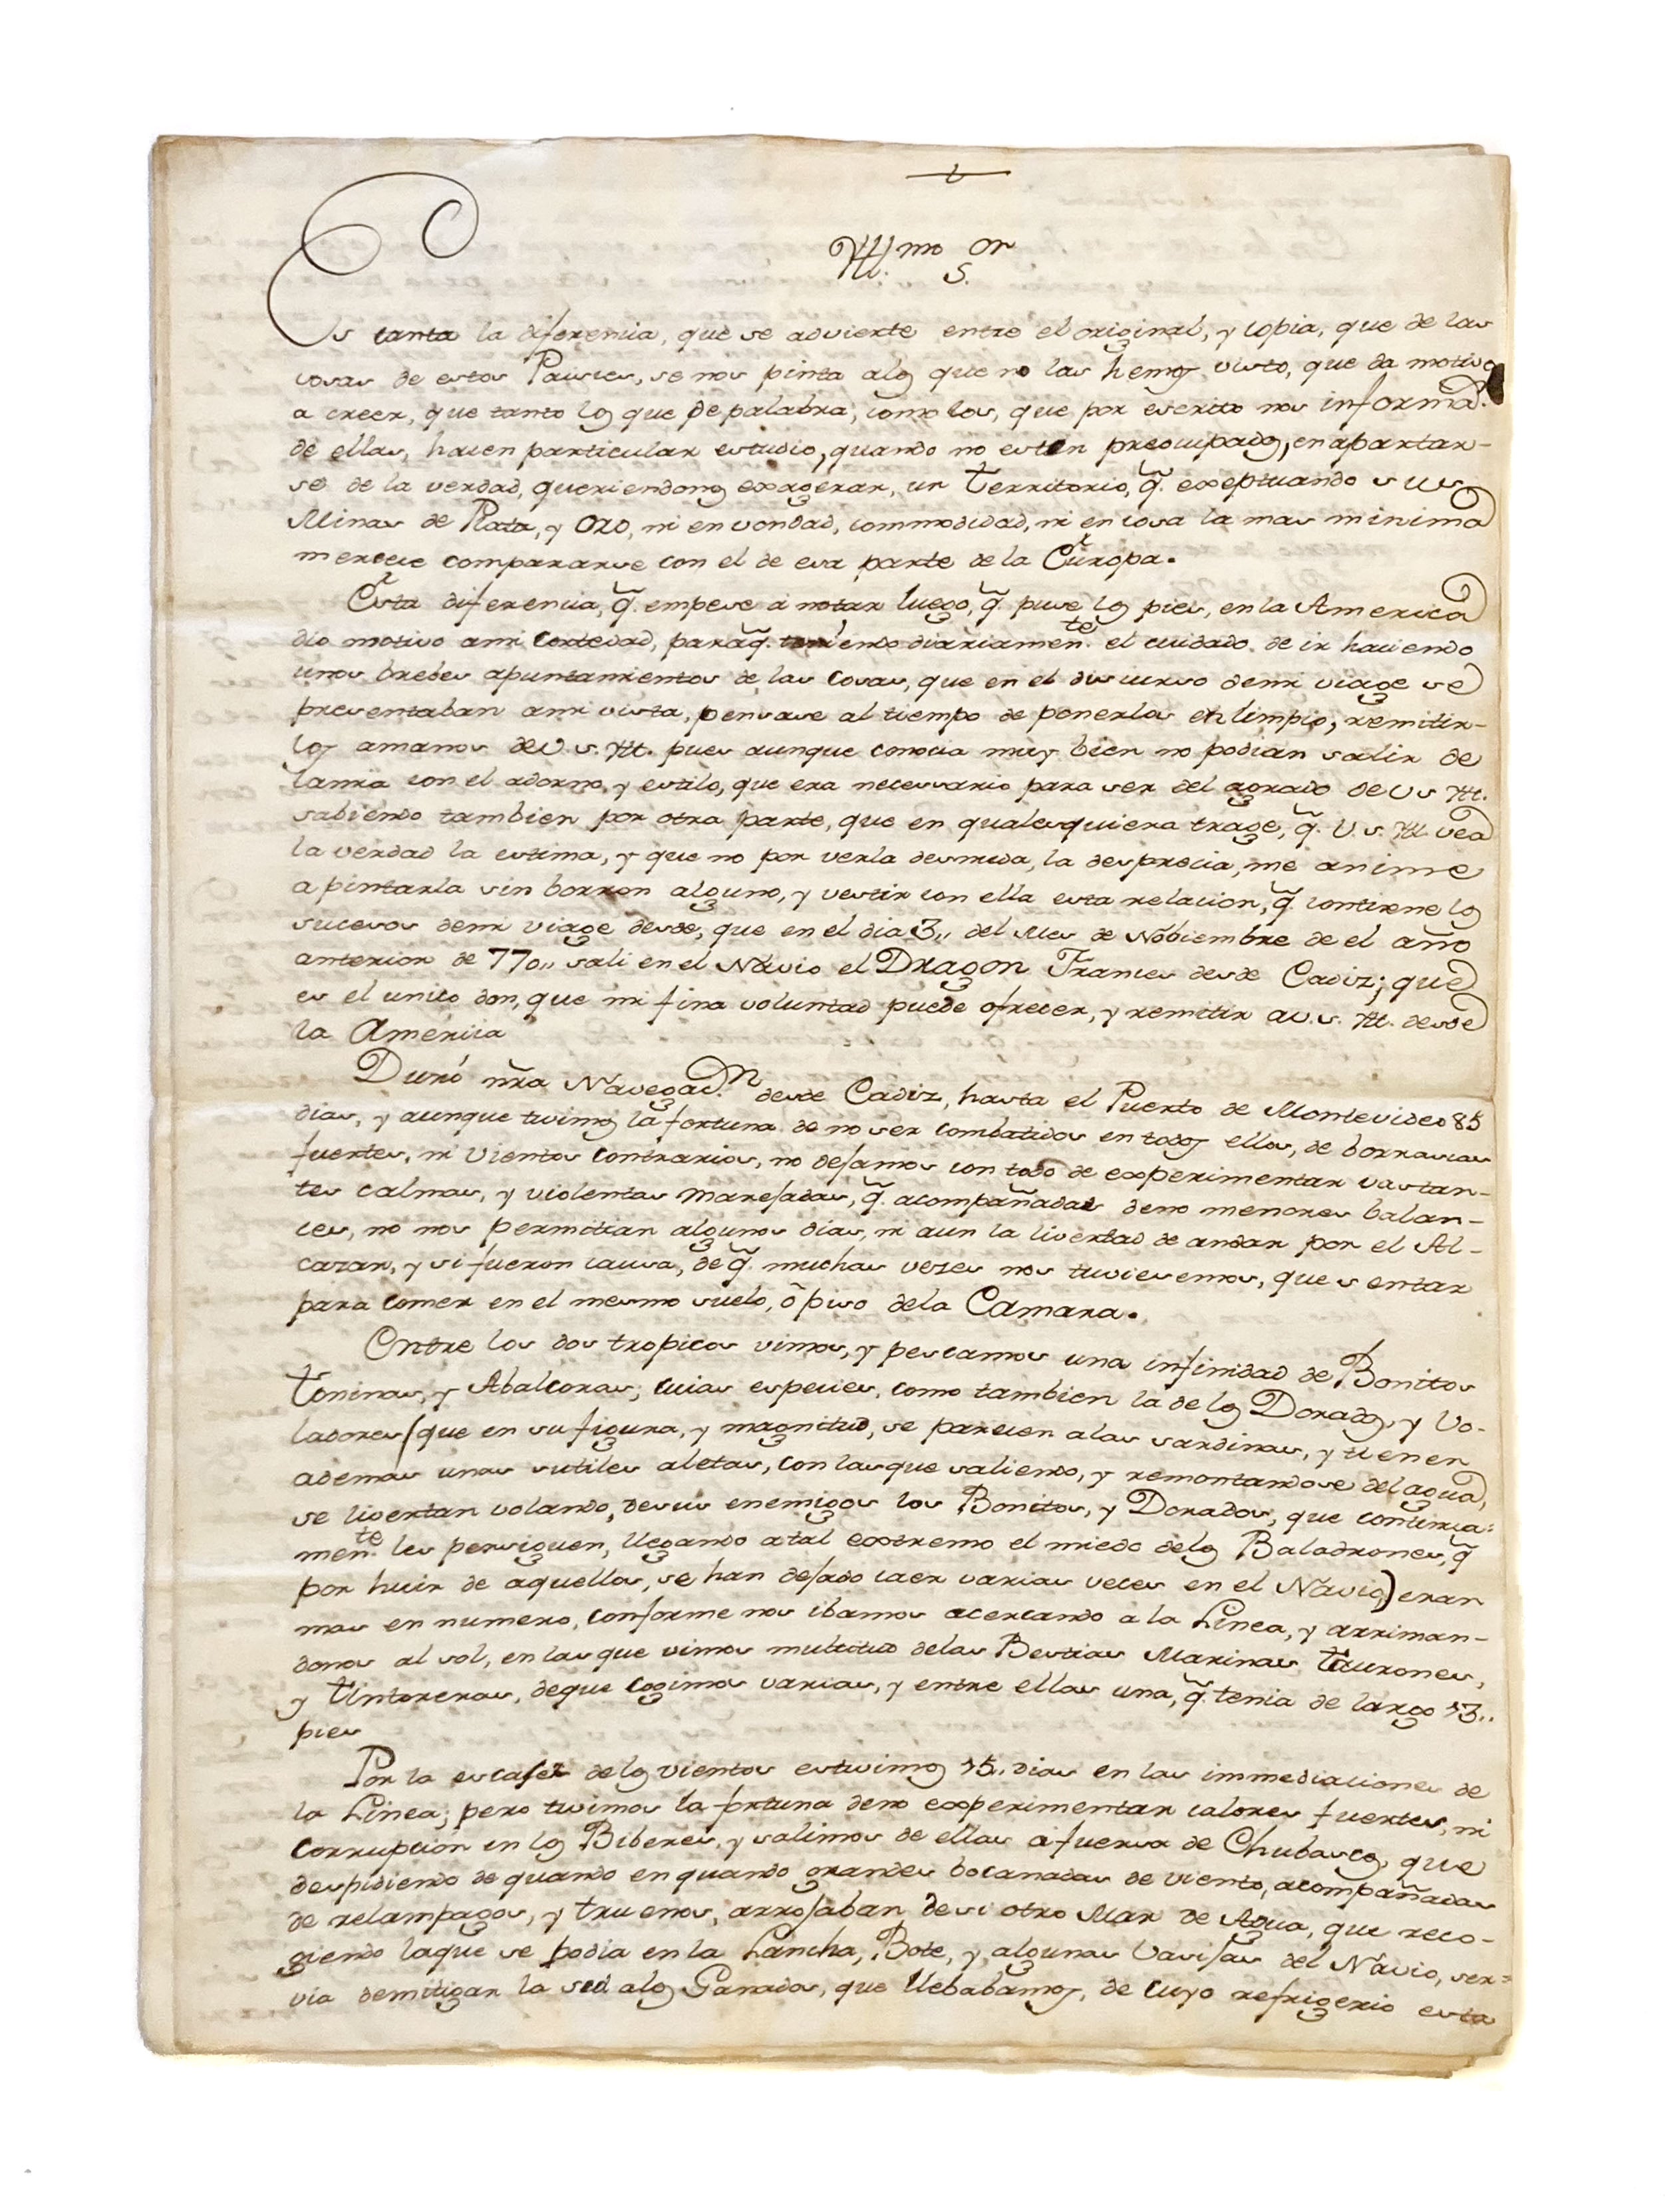 Yll.mo S.or
Es tanta la diferencia, que se advierte entre el original, y copia, que de las
cosas de estos Paises, se nos pinta a los que no las hemos visto, que da motivo
a creer, que tanto los que de palabra, como los, que por escrito nos informan
de ellas, hacen particular estudio, quando no esten preocupados, en apartar-
se de la verdad, queriendonos exagerar, un Territorio, q̃. exeptuando sus
Minas de Plata, y Oro, ni en vondad, commodidad, ni en cosa la mas minima
merece compararse con el de esa parte de la Europa.
Esta diferencia, q̃. empese a notar luego, q̃. puse los pies, en la America
dio motivo a mi cortedad, para q̃. teniendo diariamen.te el cuidado de ir haciendo
unos brebes apuntamientos de las cosas, que en el discurso de mi viage se
presentaban a mi vista, pensase al tiempo de ponerlos en limpio, remitir-
los a manos de V. S. Yll. pues aunque conocia muy bien no podian salir de
la mia con el adorno, y estilo, que era necessario para ser del agrado de V S Yll.
sabiendo tambien por otra parte, que en qualesquiera trage, q̃. V. S. Yll. vea
la verdad la estima, y que no por verla desnuda, la desprecia, me anime
a pintarla sin borron alguno, y vestir con ella esta relacion, q̃. contiene los
sucesos de mi viage desde, que en el dia 3,, del Mes de Nobiembre de el año
anterior de 770,, sali en el Navio el Dragon Frances desde Cadiz; que
es el unico don, que mi fina voluntad puede ofrecer, y remitir a V. S. Yll. desde
la America
Duró nr̃a Navegac.n desde Cadiz, hasta el Puerto de Montevideo 85
dias, y aunque tuvimos la fortuna de no ser combatidos en todos ellos, de borrascas
fuertes, ni Vientos contrarios, no dejamos con todo de experimentar vastan-
tes calmas, y violentas marejadas, q̃. acompañadas de no menores balan-
ces, no nos permitian algunos dias, ni aun la livertad de andar por el Al-
cazar, y si fueron causa, de q̃. muchas vezes nos tuviesemos, que sentar
para comer en el mesmo suelo, õ piso de la Camara.
Entre los dos tropicos vimos, y pescamos una infinidad de Bonittos
Toninas, y Abalcoras, cuias especies, como tambien la de los Dorados, y Vo-
ladores (que en su figura, y magnitud, se parecen a las sardinas, y tienen
ademas unas sutiles aletas, con las que saliendo, y remontandose del agua,
se livertan volando, de sus enemigos los Bonitos, y Dorados, que continua-
men.te les persiguen, llegando a tal extremo el miedo de los Baladrones, q̃
por huir de aquellos, se han dejado caer varias veces en el Navio) eran
mas en numero, conforme nos ibamos acercando a la Linea, y arriman-
donos al sol, en las que vimos multitud de las Bestias Marinas Taurones,
y Tintoreras, de que cogimos varias, y entre ellas una, q̃. tenia de largo 13,,
pies
Por la escasez de los vientos estuvimos 15,, dias en las immediaciones de
la Linea; pero tuvimos la fortuna de no experimentar calores fuertes, ni
corrupcion en los Biberes, y salimos de ellas a fuersa de Chubascos, que
despidiendo de quando en quando grandes bocanadas de viento, acompañadas
de relampagos, y truenos, arrojaban de si otro Mar de Agua, que reco-
giendo la que se podia en la Lancha, Bote, y algunas Vasijas del Navio, ser-
via de mitigar la sed a los Ganados, que llebabamos, de cuyo refrigerio esta